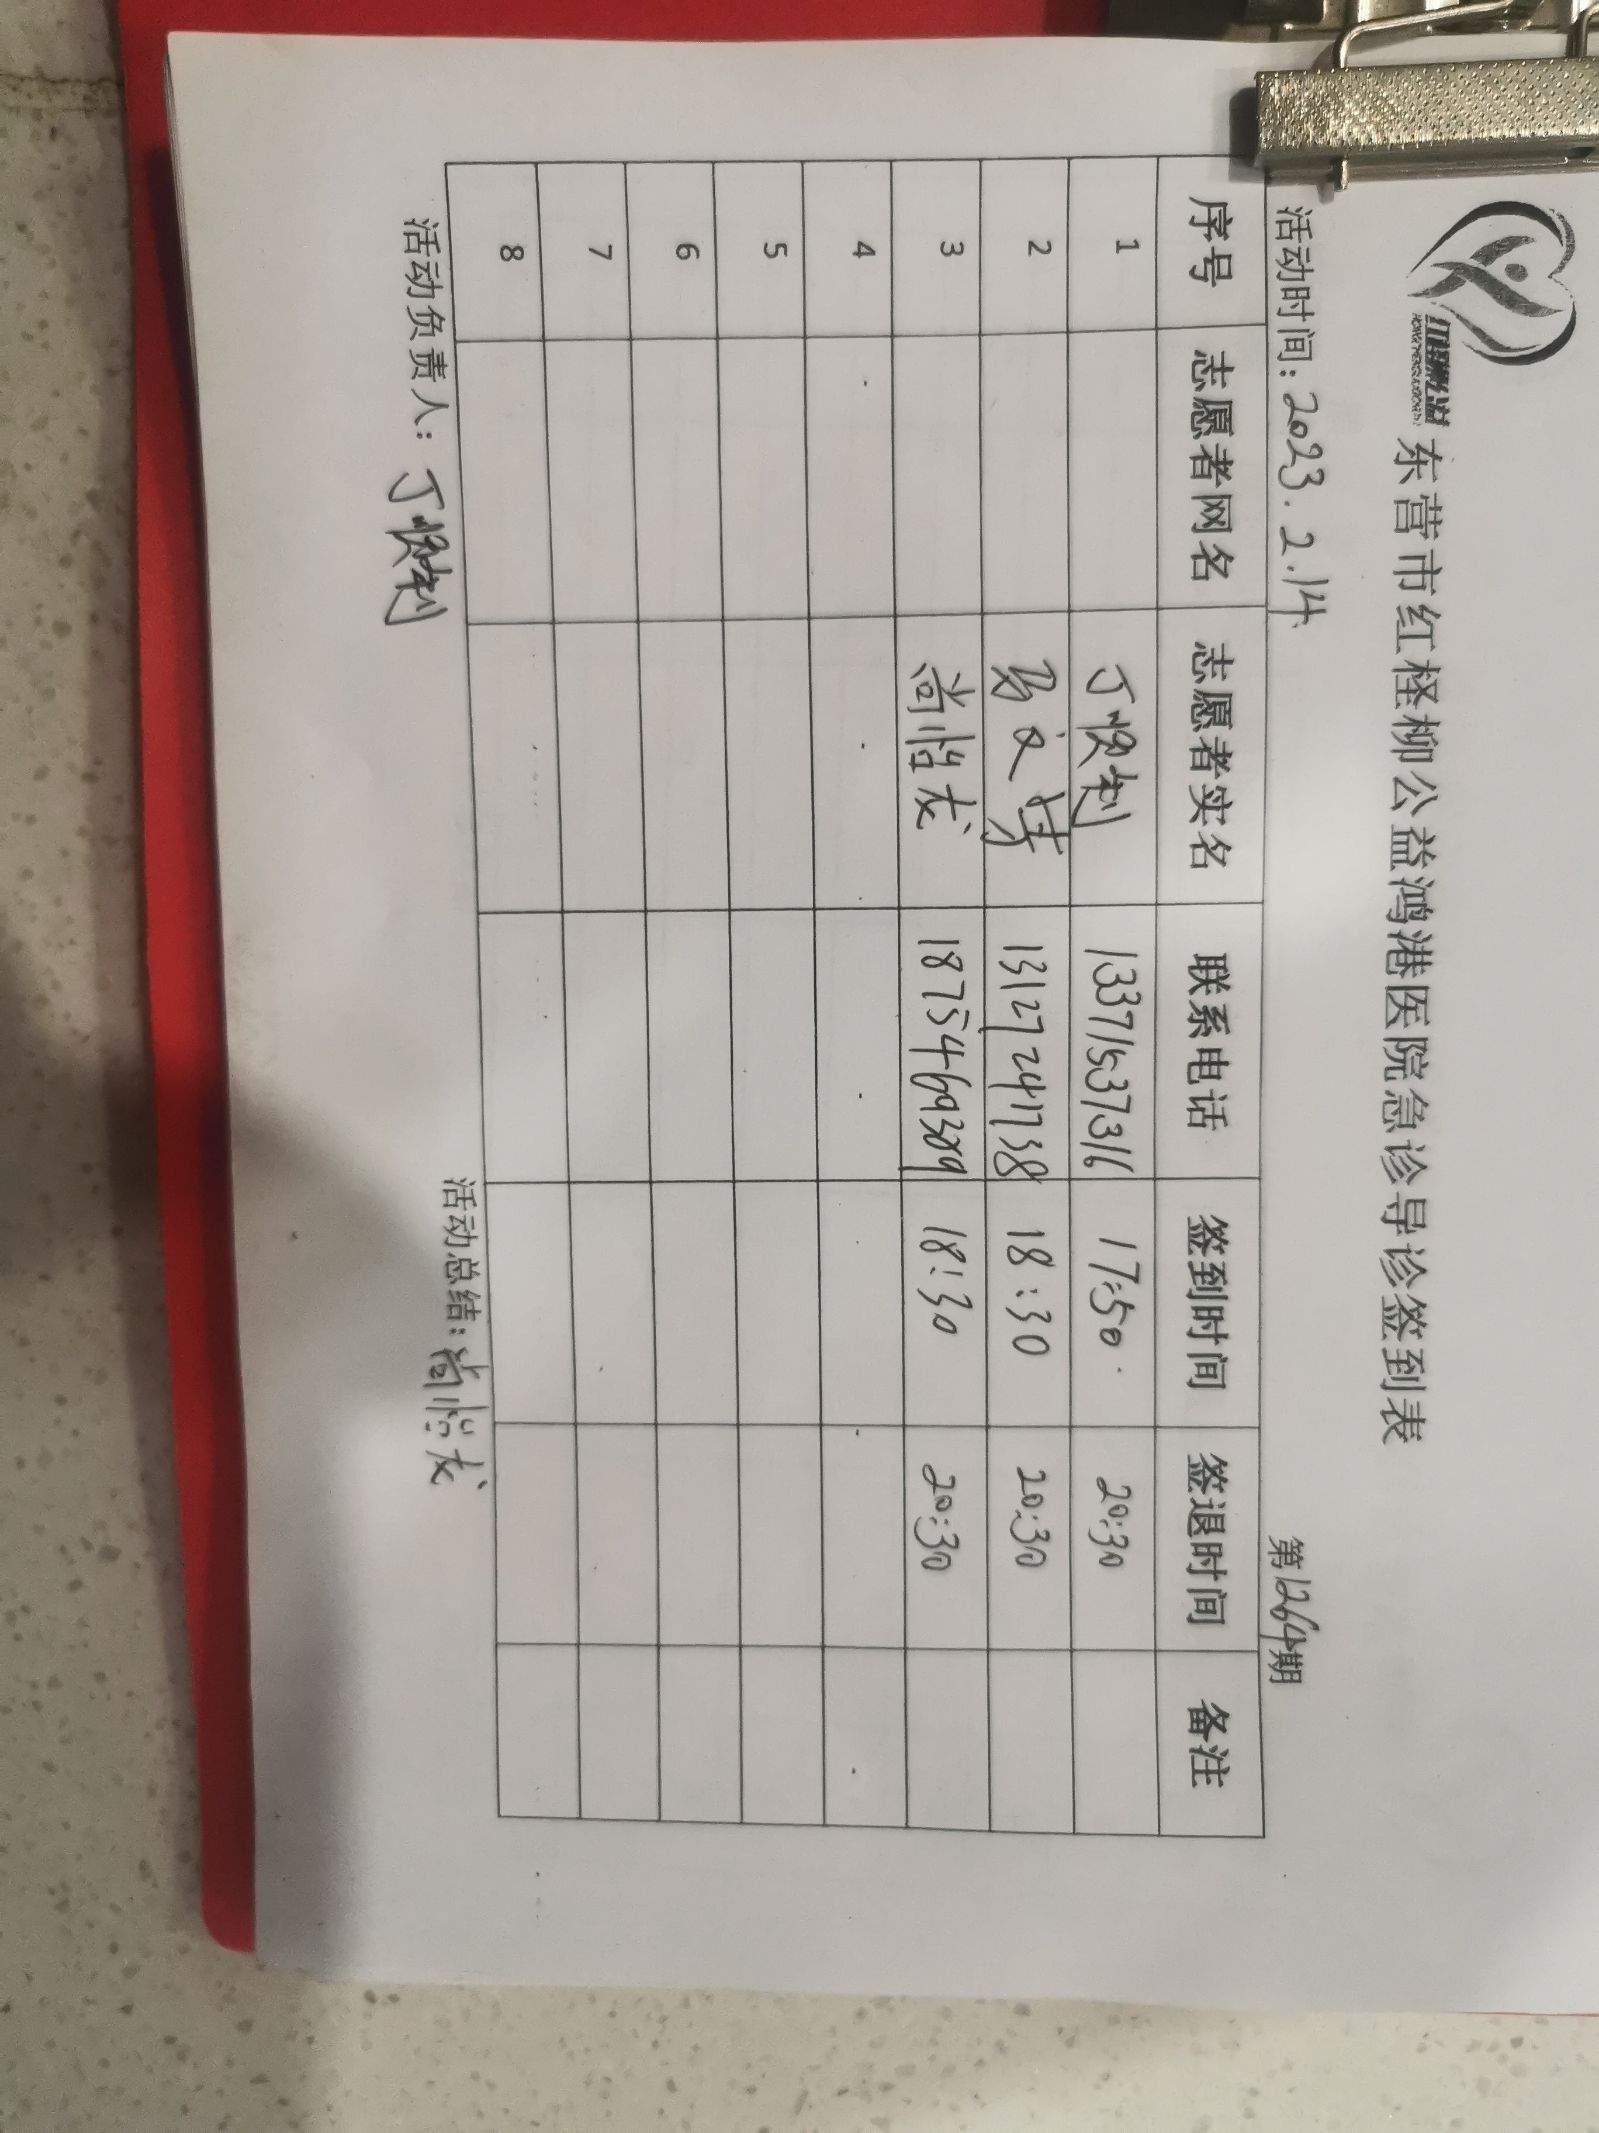 东营市红柽柳公益鸿港医院急诊导诊签到表
活动时间：2023.2.14 第1264期
序号 志愿者网名 志愿者实名 联系电话 签到时间 签退时间 备注
1 丁 13371537316 17:50 20:30
2 13127241738 18:30 20:30
3 尚怡龙 18754669389 18:30 20:30
4
5
6
7
8
活动负责人：丁 活动总结：尚怡龙